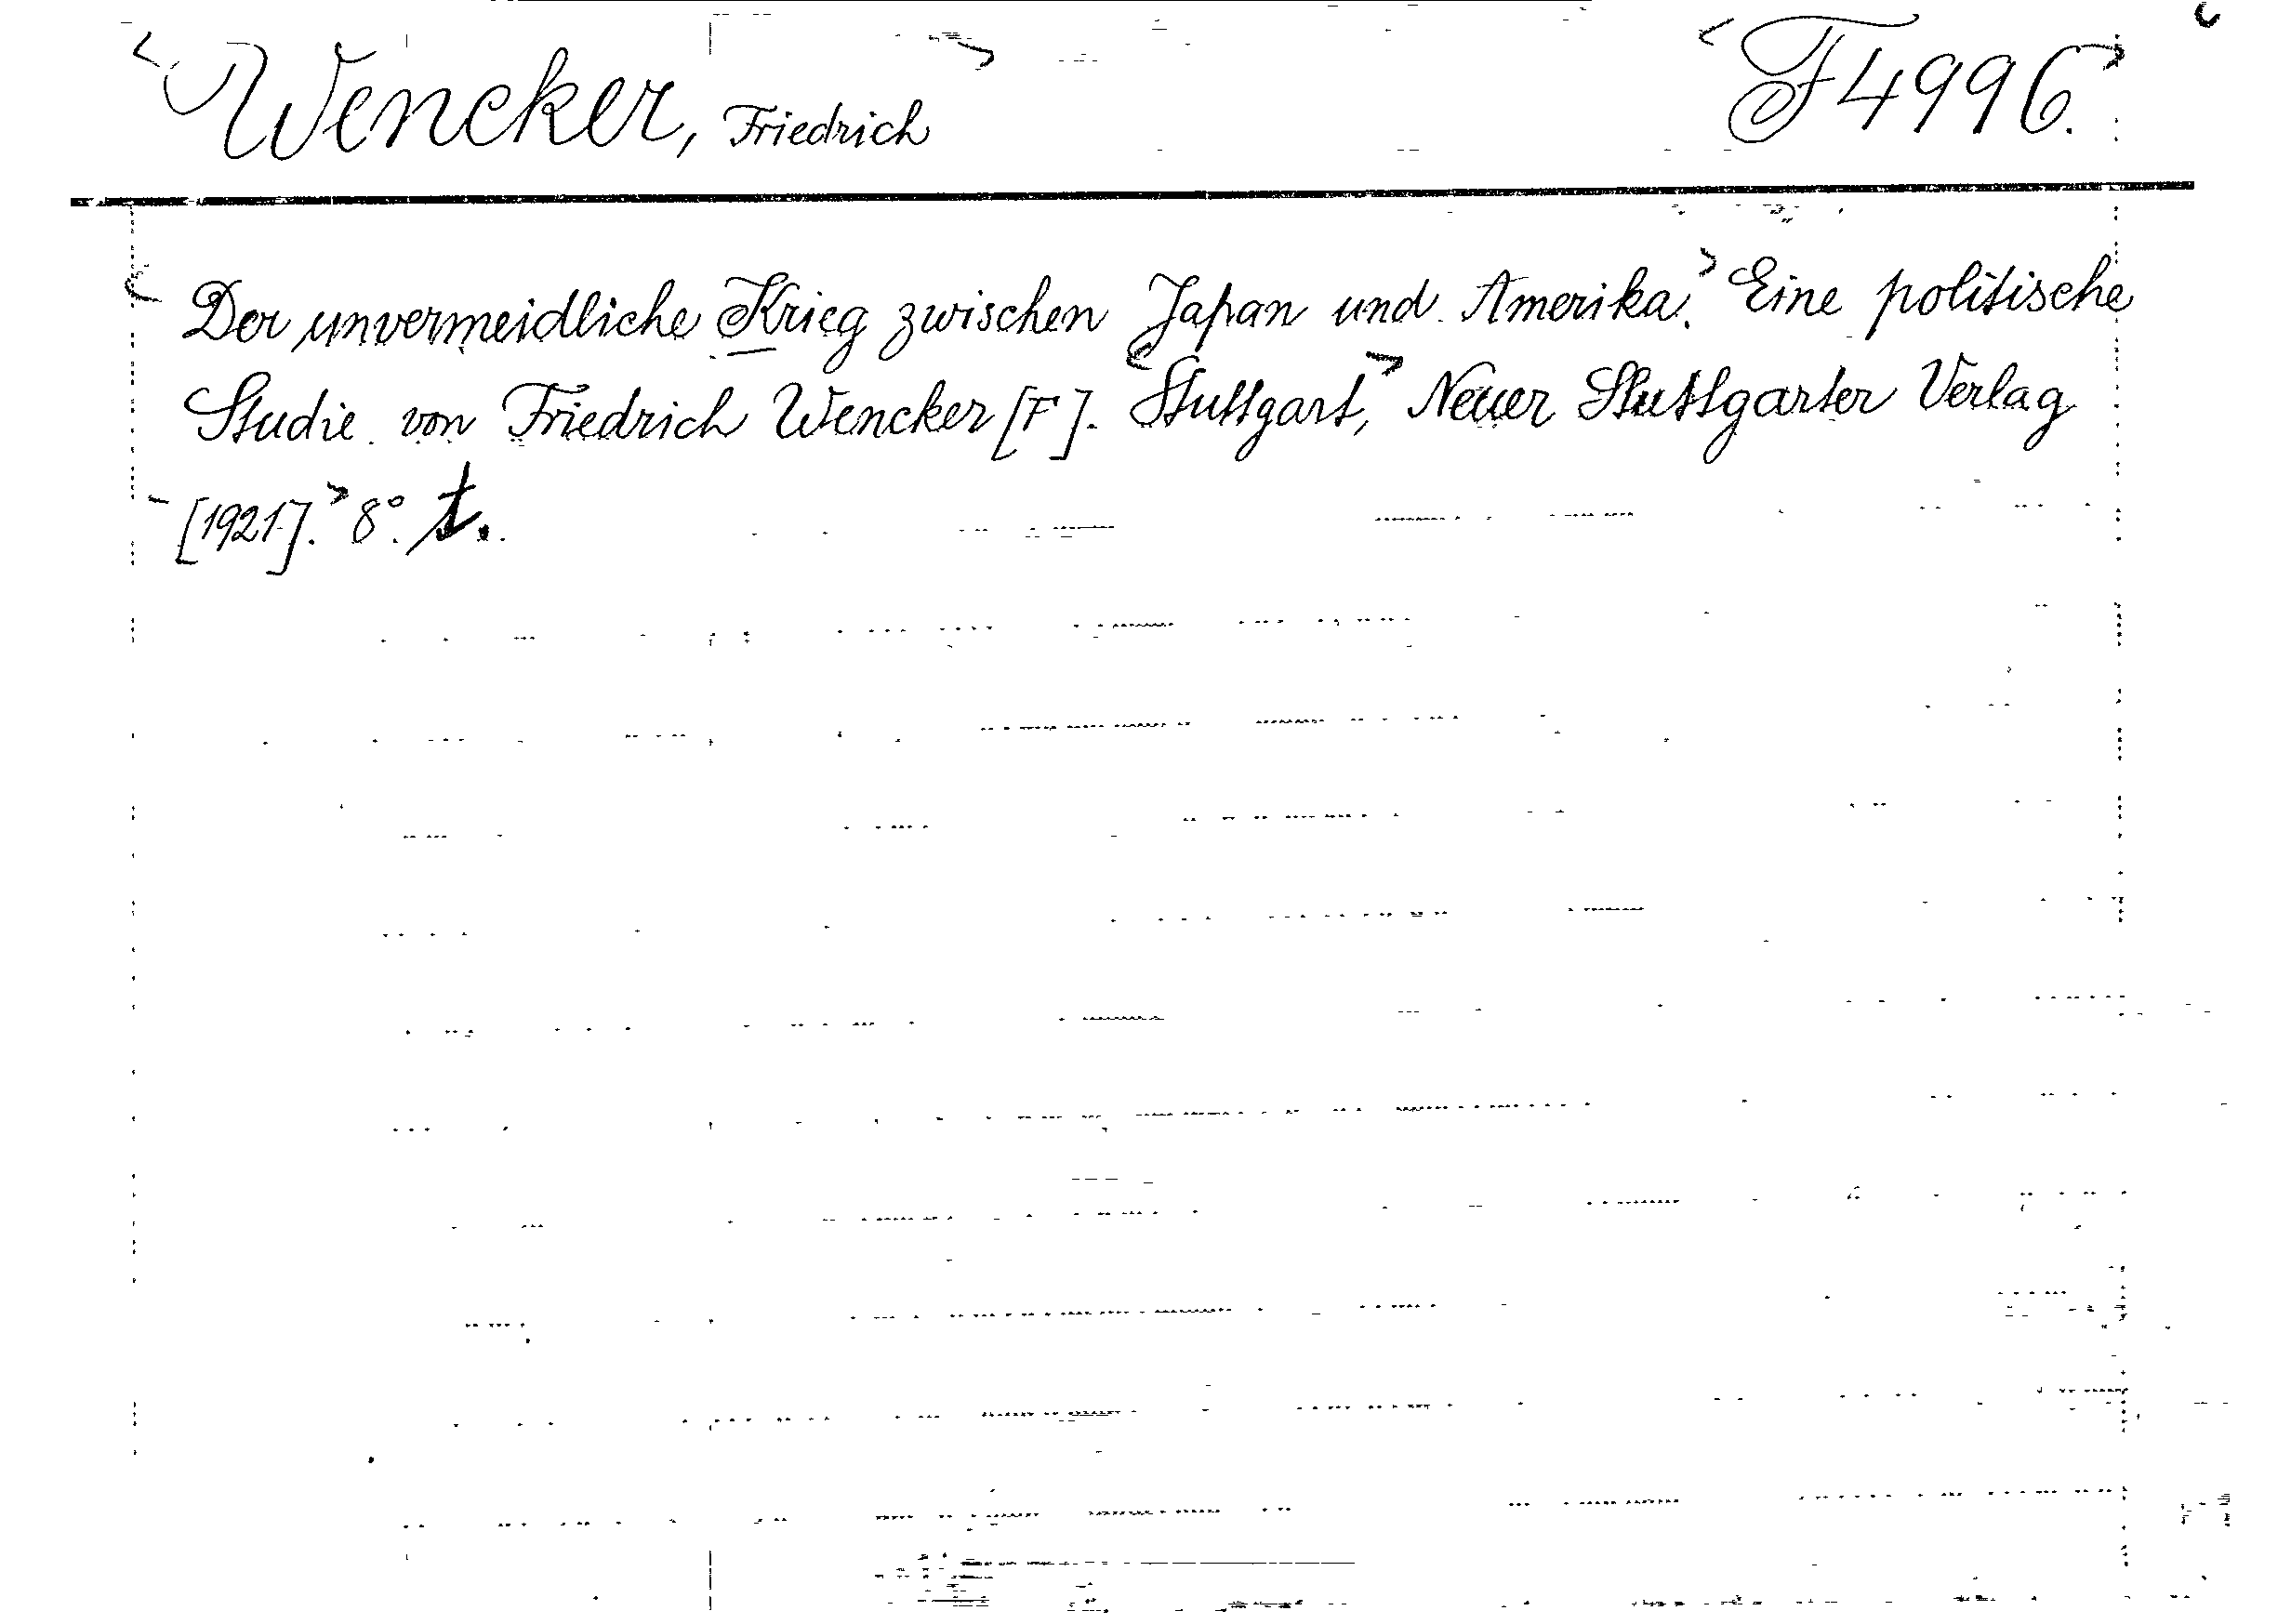 Wencker, Friedrich F 4996.
Der unvermeidliche Krieg zwischen Japan und Amerika. Eine politische
Studie von Friedrich Wencker [F]. Stuttgart, Neuer Stuttgarter Verlag
[1921]. 8°. t.